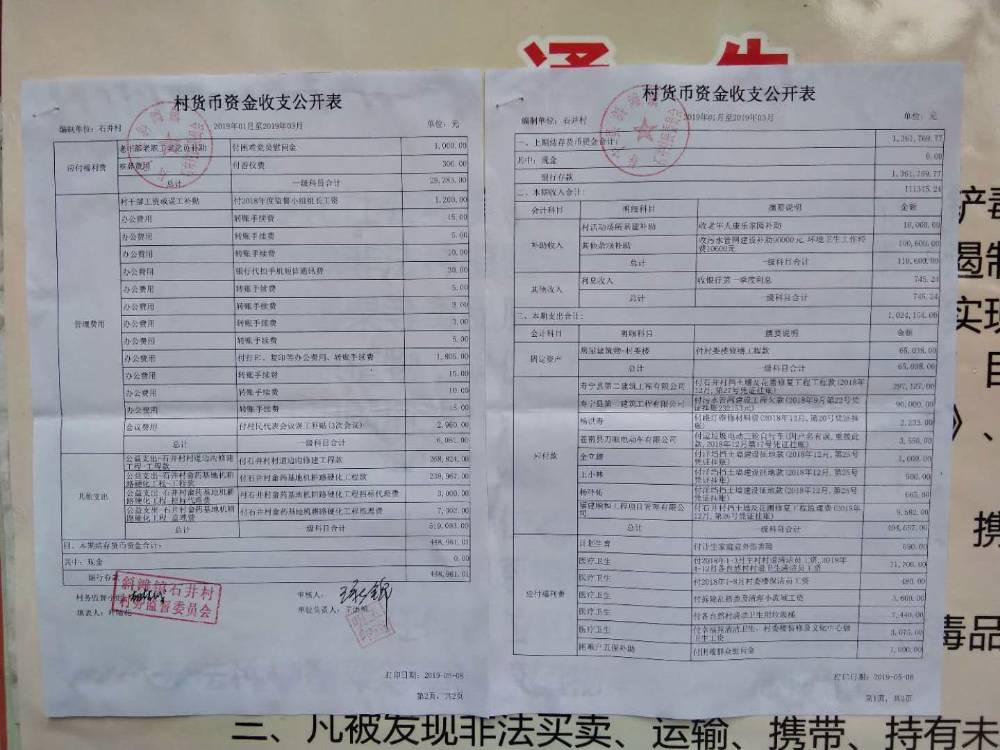 通告
村货币资金收支公开表
编制单位：石井村
2019年01月至2019年03月
单位：元
应付福利费
付困难党员慰问金 1,000.00
付香仪费 300.00
总计 一级科目合计 29,783.00
管理费用
村干部工资或误工补贴 付2018年度监督小组组长工资 1,200.00
办公费用 转账手续费 15.00
办公费用 转账手续费 5.00
办公费用 转账手续费 10.00
办公费用 银行代扣手机短信通讯费 30.00
办公费用 转账手续费 5.00
办公费用 转账手续费
办公费用 转账手续费
办公费用 转账手续费 5.00
办公费用 付打印、复印等办公费用、转账手续费 1,805.00
办公费用 转账手续费 15.00
办公费用 转账手续费 10.00
办公费用 转账手续费 15.00
会议费用 付村民代表会议误工补贴(3次会议) 2,960.00
总计 一级科目合计 6,081.00
其他支出
公益支出-石井村村道边沟修建工程-工程款 付石井村村道边沟修建工程款 268,824.00
公益支出-石井村畲药基地机耕路硬化工程-工程款 付石井村畲药基地机耕路硬化工程款 239,962.00
付石井村畲药基地机耕路硬化工程招标代理费 3,000.00
公益支出-石井村畲药基地机耕路硬化工程-监理费 付石井村畲药基地机耕路硬化工程监理费
总计 一级科目合计 519,083.00
四、本期结存货币资金合计： 448,961.01
其中：现金 0.00
银行存款 448,961.01
村务监督小组
审核人：
填表人：
单位负责人：
斜滩镇石井村
村务监督委员会
打印日期：2019-05-08
第2页，共2页
村货币资金收支公开表
编制单位：石井村
2019年01月至2019年03月
单位：元
一、上期结存货币资金合计： 1,361,769.77
其中：现金 0.00
银行存款 1,361,769.77
二、本期收入合计： 111345.24
会计科目 明细科目 摘要说明 金额
补助收入
村活动场所新建补助 收老年人康乐家园补助 10,000.00
其他杂项补助 收污水管网建设补助90000元，环境卫生工作经费10600元 100,600.00
总计 一级科目合计 110,600.00
其他收入
利息收入 收银行第一季度利息 745.24
总计 一级科目合计 745.24
三、本期支出合计： 1,024,154.00
会计科目 明细科目 摘要说明 金额
固定资产
房屋建筑物-村委楼 付村委楼修缮工程款 65,038.00
总计 一级科目合计 65,038.00
应付款
寿宁县第二建筑工程有限公司 付石井村挡土墙及花圃修复工程工程款(2018年12月，第27号凭证挂账) 297,127.00
寿宁县第一建筑工程有限公司 付污水管网建设工程欠款(2018年9月第22号凭证挂账232153元) 90,000.00
杨洪寿 付路灯维修材料费(2018年12月，第20号凭证挂账) 2,233.00
苍南县万顺电动车有限公司 3,550.00
付洋垱挡土墙建设征地款(2018年12月，第25号凭证挂账)
王小林 付洋垱挡土墙建设征地款(2018年12月，第25号凭证挂账) 500.00
付洋垱挡土墙建设征地款(2018年12月，第25号凭证挂账)
付石井村挡土墙及花圃修复工程监理费(2018年12月，第26号凭证挂账)
总计 一级科目合计 404,657.00
应付福利费
计划生育 付计生家庭意外伤害险 690.00
医疗卫生 11,700.00
医疗卫生 付2018年1-8月村委楼保洁员工资 480.00
医疗卫生 3,600.00
医疗卫生 付各自然村清洁卫生用垃圾桶 7,440.00
医疗卫生 3,075.00
困难户五保补助 付困难群众慰问金 1,800.00
打印日期：2019-05-08
第1页，共2页
铲毒
遏制
实现
目
》、
携
毒品
三、凡被发现非法买卖、运输、携带、持有未